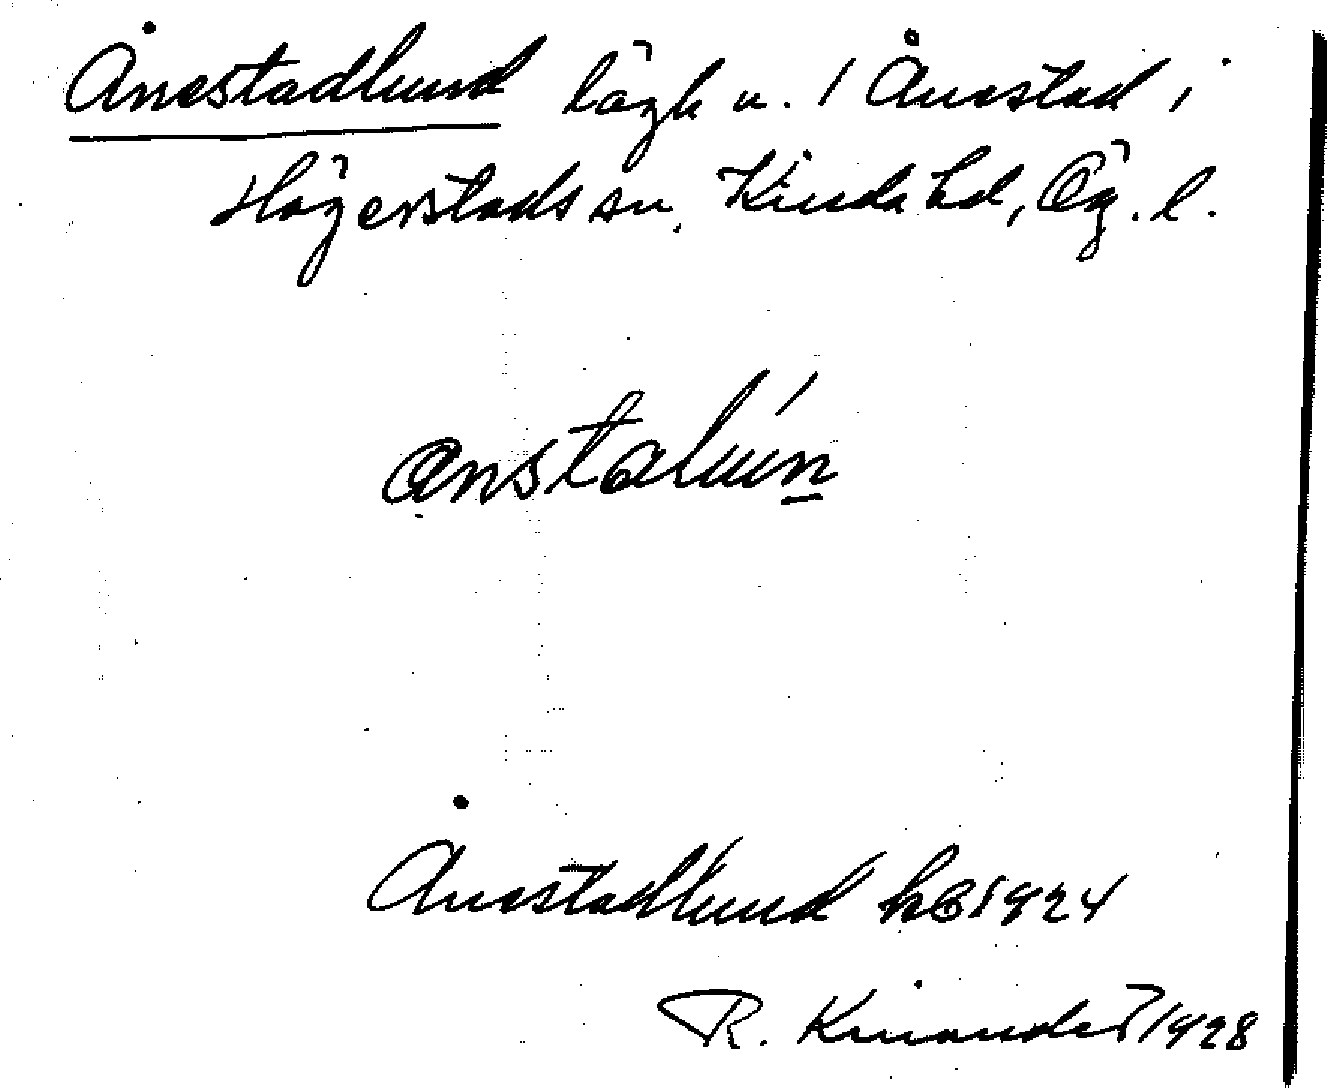 Ånestadlund lägh u. 1 Ånestad i
Hägerstads sn, Kinda hd, Ög. l.
Ånestadlund hB 1924
R. Kinander 1928